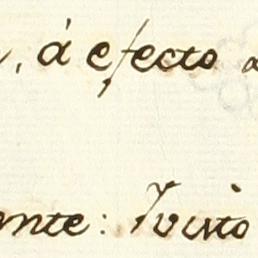 , á efecto
ente: Visto